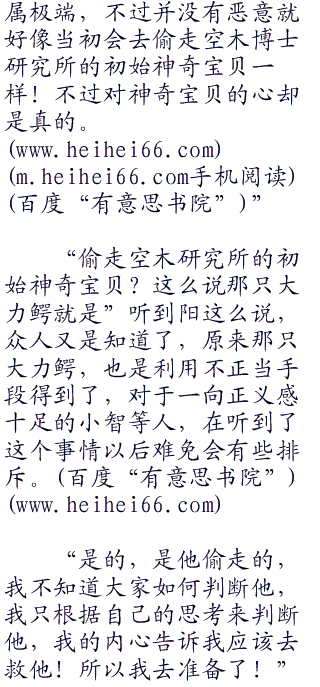 属极端，不过并没有恶意就
好像当初会去偷走空木博士
研究所的初始神奇宝贝一
样！不过对神奇宝贝的心却
是真的。
(www.heihei66.com)
(m.heihei66.com手机阅读)
(百度“有意思书院”)”
“偷走空木研究所的初
始神奇宝贝？这么说那只大
力鳄就是”听到阳这么说，
众人又是知道了，原来那只
大力鳄，也是利用不正当手
段得到了，对于一向正义感
十足的小智等人，在听到了
这个事情以后难免会有些排
斥。(百度“有意思书院”)
(www.heihei66.com)
“是的，是他偷走的，
我不知道大家如何判断他，
我只根据自己的思考来判断
他，我的内心告诉我应该去
救他！所以我去准备了！”